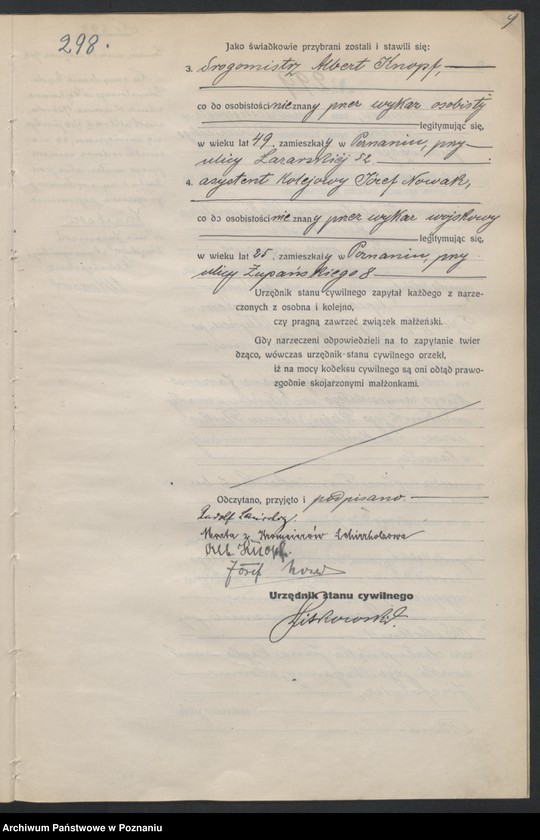 298.
Jako świadkowie przybrani zostali i stawili się:
3. Drogomistrz Albert Knopf,
co do osobistości nieznany przez wykaz osobisty
legitymując się,
w wieku lat 49, zamieszkały w Poznaniu, przy
ulicy Lazarskiej 52
4. asystent kolejowy Józef Nowak,
co do osobistości nieznany przez wykaz wojskowy
legitymując się,
w wieku lat 25, zamieszkały w Poznaniu, przy
ulicy Żupańskiego 8
Urzędnik stanu cywilnego zapytał każdego z narze-
czonych z osobna i kolejno,
czy pragną zawrzeć związek małżeński.
Gdy narzeczeni odpowiedzieli na to zapytanie twier
dząco, wówczas urzędnik stanu cywilnego orzekł,
iż na mocy kodeksu cywilnego są oni odtąd prawo-
zgodnie skojarzonymi małżonkami.
Odczytano, przyjęto i podpisano
Rudolf
Marta z
Alb. Knopf.
Józef Nowak
Urzędnik stanu cywilnego
Archiwum Państwowe w Poznaniu